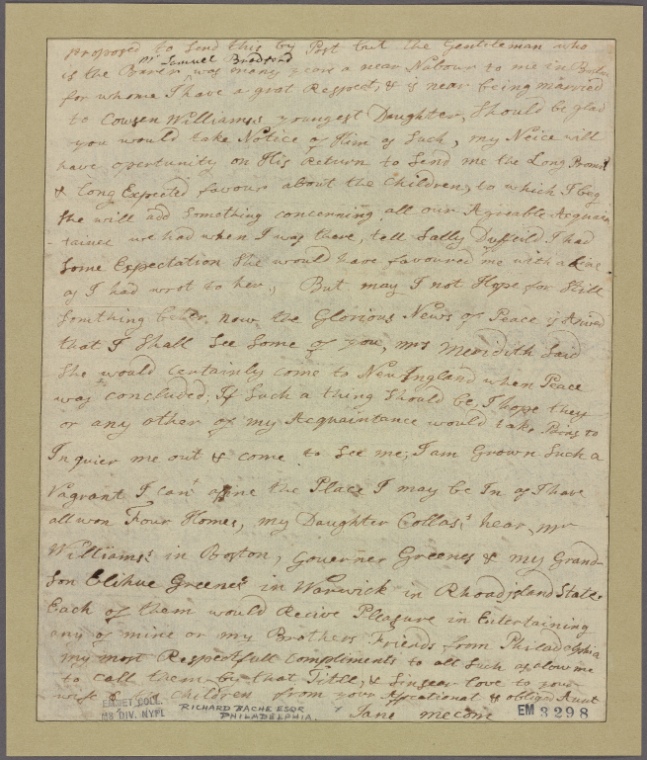 proposed to Send this by Post but the Gentileman who
Mr Samuel Bradford
is the Barer was many years a near Nabour to me in Boston
for whome I have a grat Respect, & is near being married
to Cousen Williams's youngest Daughter, Should be glad
you would take Notice of Him as Such, my Neice will
have opertunity on His Return to Send me the Long Promisd
& Long Expected favour about the Children, to which I beg
She will add Something concerning all our Agreable Acquain
-tance we had when I was there, tell Sally Duffeild I had
Some Expectation She would have favoured me with a Line
as I had wrot to her, But may I not Hope for Still
Somthing beter now the Glorious News of Peace is Arived
that I Shall See Some of you, mrs Meridith Said
She would certainly come to New Ingland when Peace
was concluded, If Such a thing Should be, I hope they
or any other of my Acquaintance would take Pains to
Inquier me out & come to See me, I am Grown Such a
Vagrant I can't the Place I may be In as I have
all won Four Homes, my Daughter Collas's hear, mr
Williams's in Boston, Governer Greenes & my Grand
Son Elihue Greenes in Warwick in Rhoad island State
Each of tham would Recive Pleasure in Entertaining
any of mine or my Brothers Friends from Philadelphia
my most Respectfull Compliments to all Such as alow me
to call them by that Title, & Sinsear love to your
wife & Children from your Affectionat & obliged Aunt
Jane mecom
EMMET COLL.
MS DIV. NYPL
RICHARD BACHE ESQR
PHILADELPHIA.
EM 3298